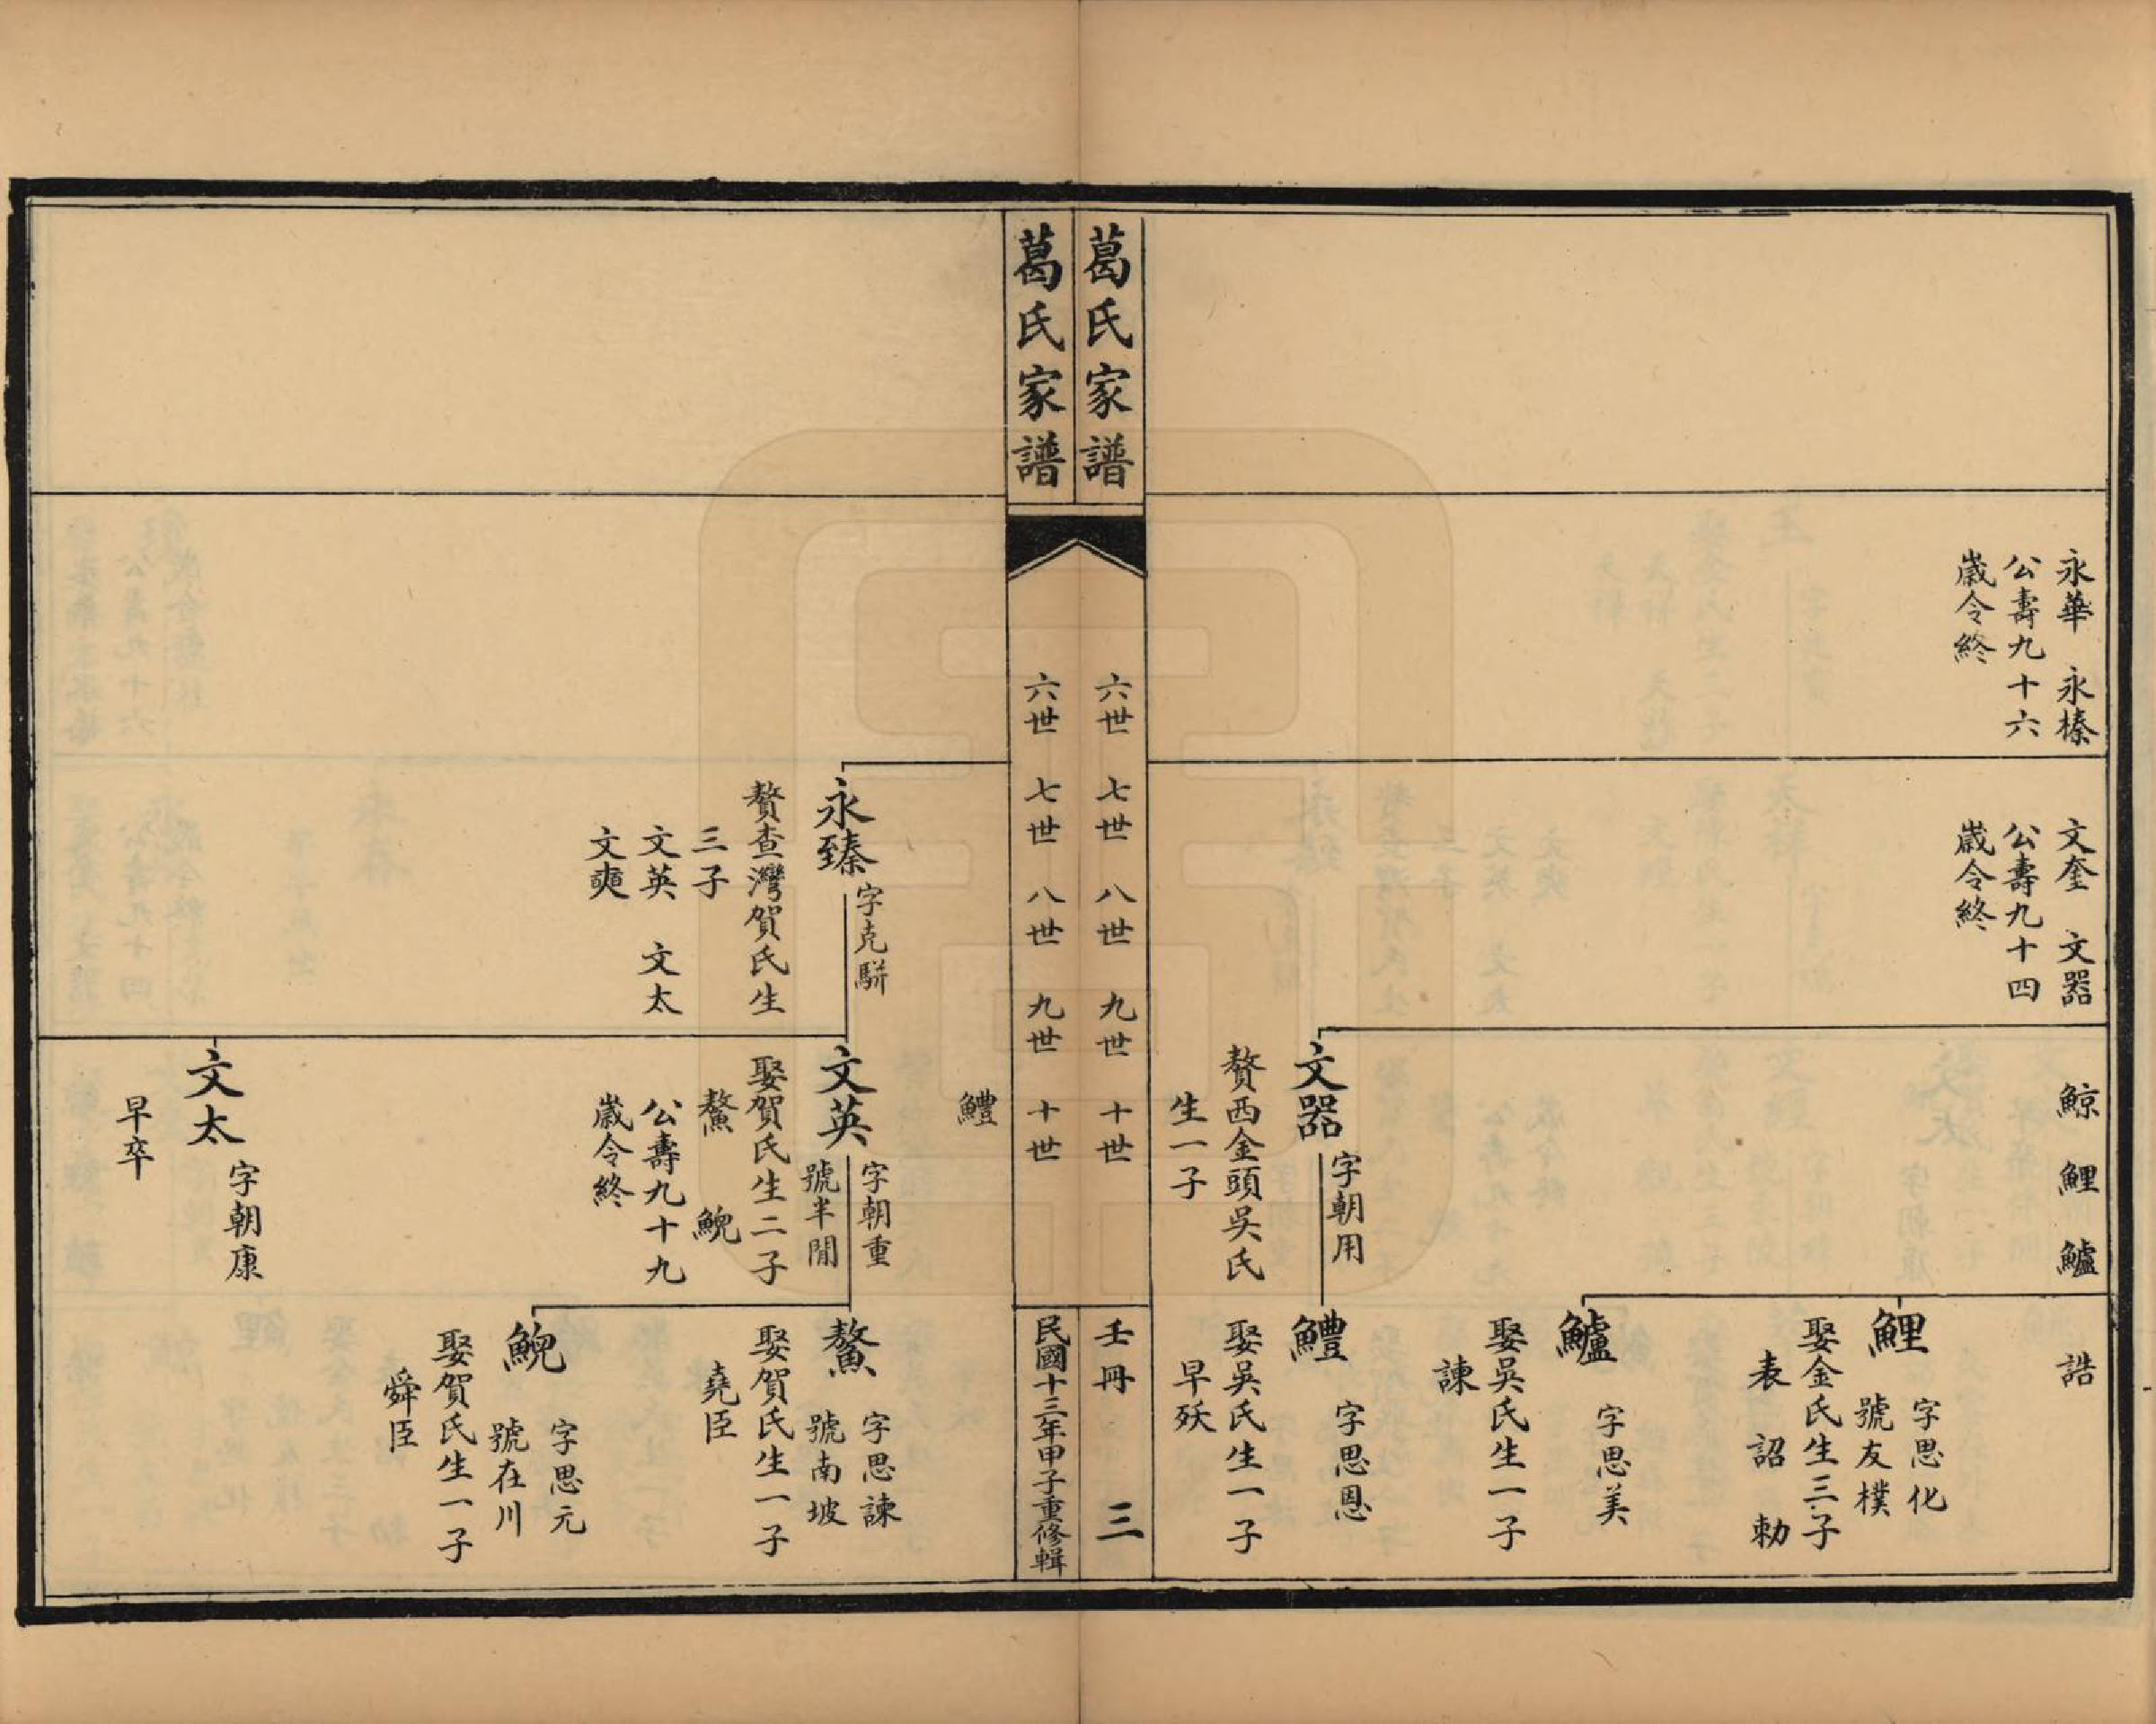 永華　永榛
公壽九十六
歲令終
文奎　文器
公壽九十四
歲令終
鯨　鯉　鱸
誥
鯉
字思化
號友樸
娶金氏生三子
表　詔　勅
鱸
字思美
娶吳氏生一子
諫
文器
字朝用
贅西金頭吳氏
生一子
鱧
字思恩
娶吳氏生一子
早殀
葛氏家譜
六世　七世　八世　九世　十世
壬冊　三
葛氏家譜
六世　七世　八世　九世　十世
民國十三年甲子重修輯
鱧
永臻
字克駢
贅查灣賀氏生
三子
文英　文太
文奭
文英
字朝重
號半閒
娶賀氏生二子
鰲　鯢
公壽九十九
歲令終
鰲
字思諫
號南坡
娶賀氏生一子
堯臣
鯢
字思元
號在川
娶賀氏生一子
舜臣
文太
字朝康
早卒